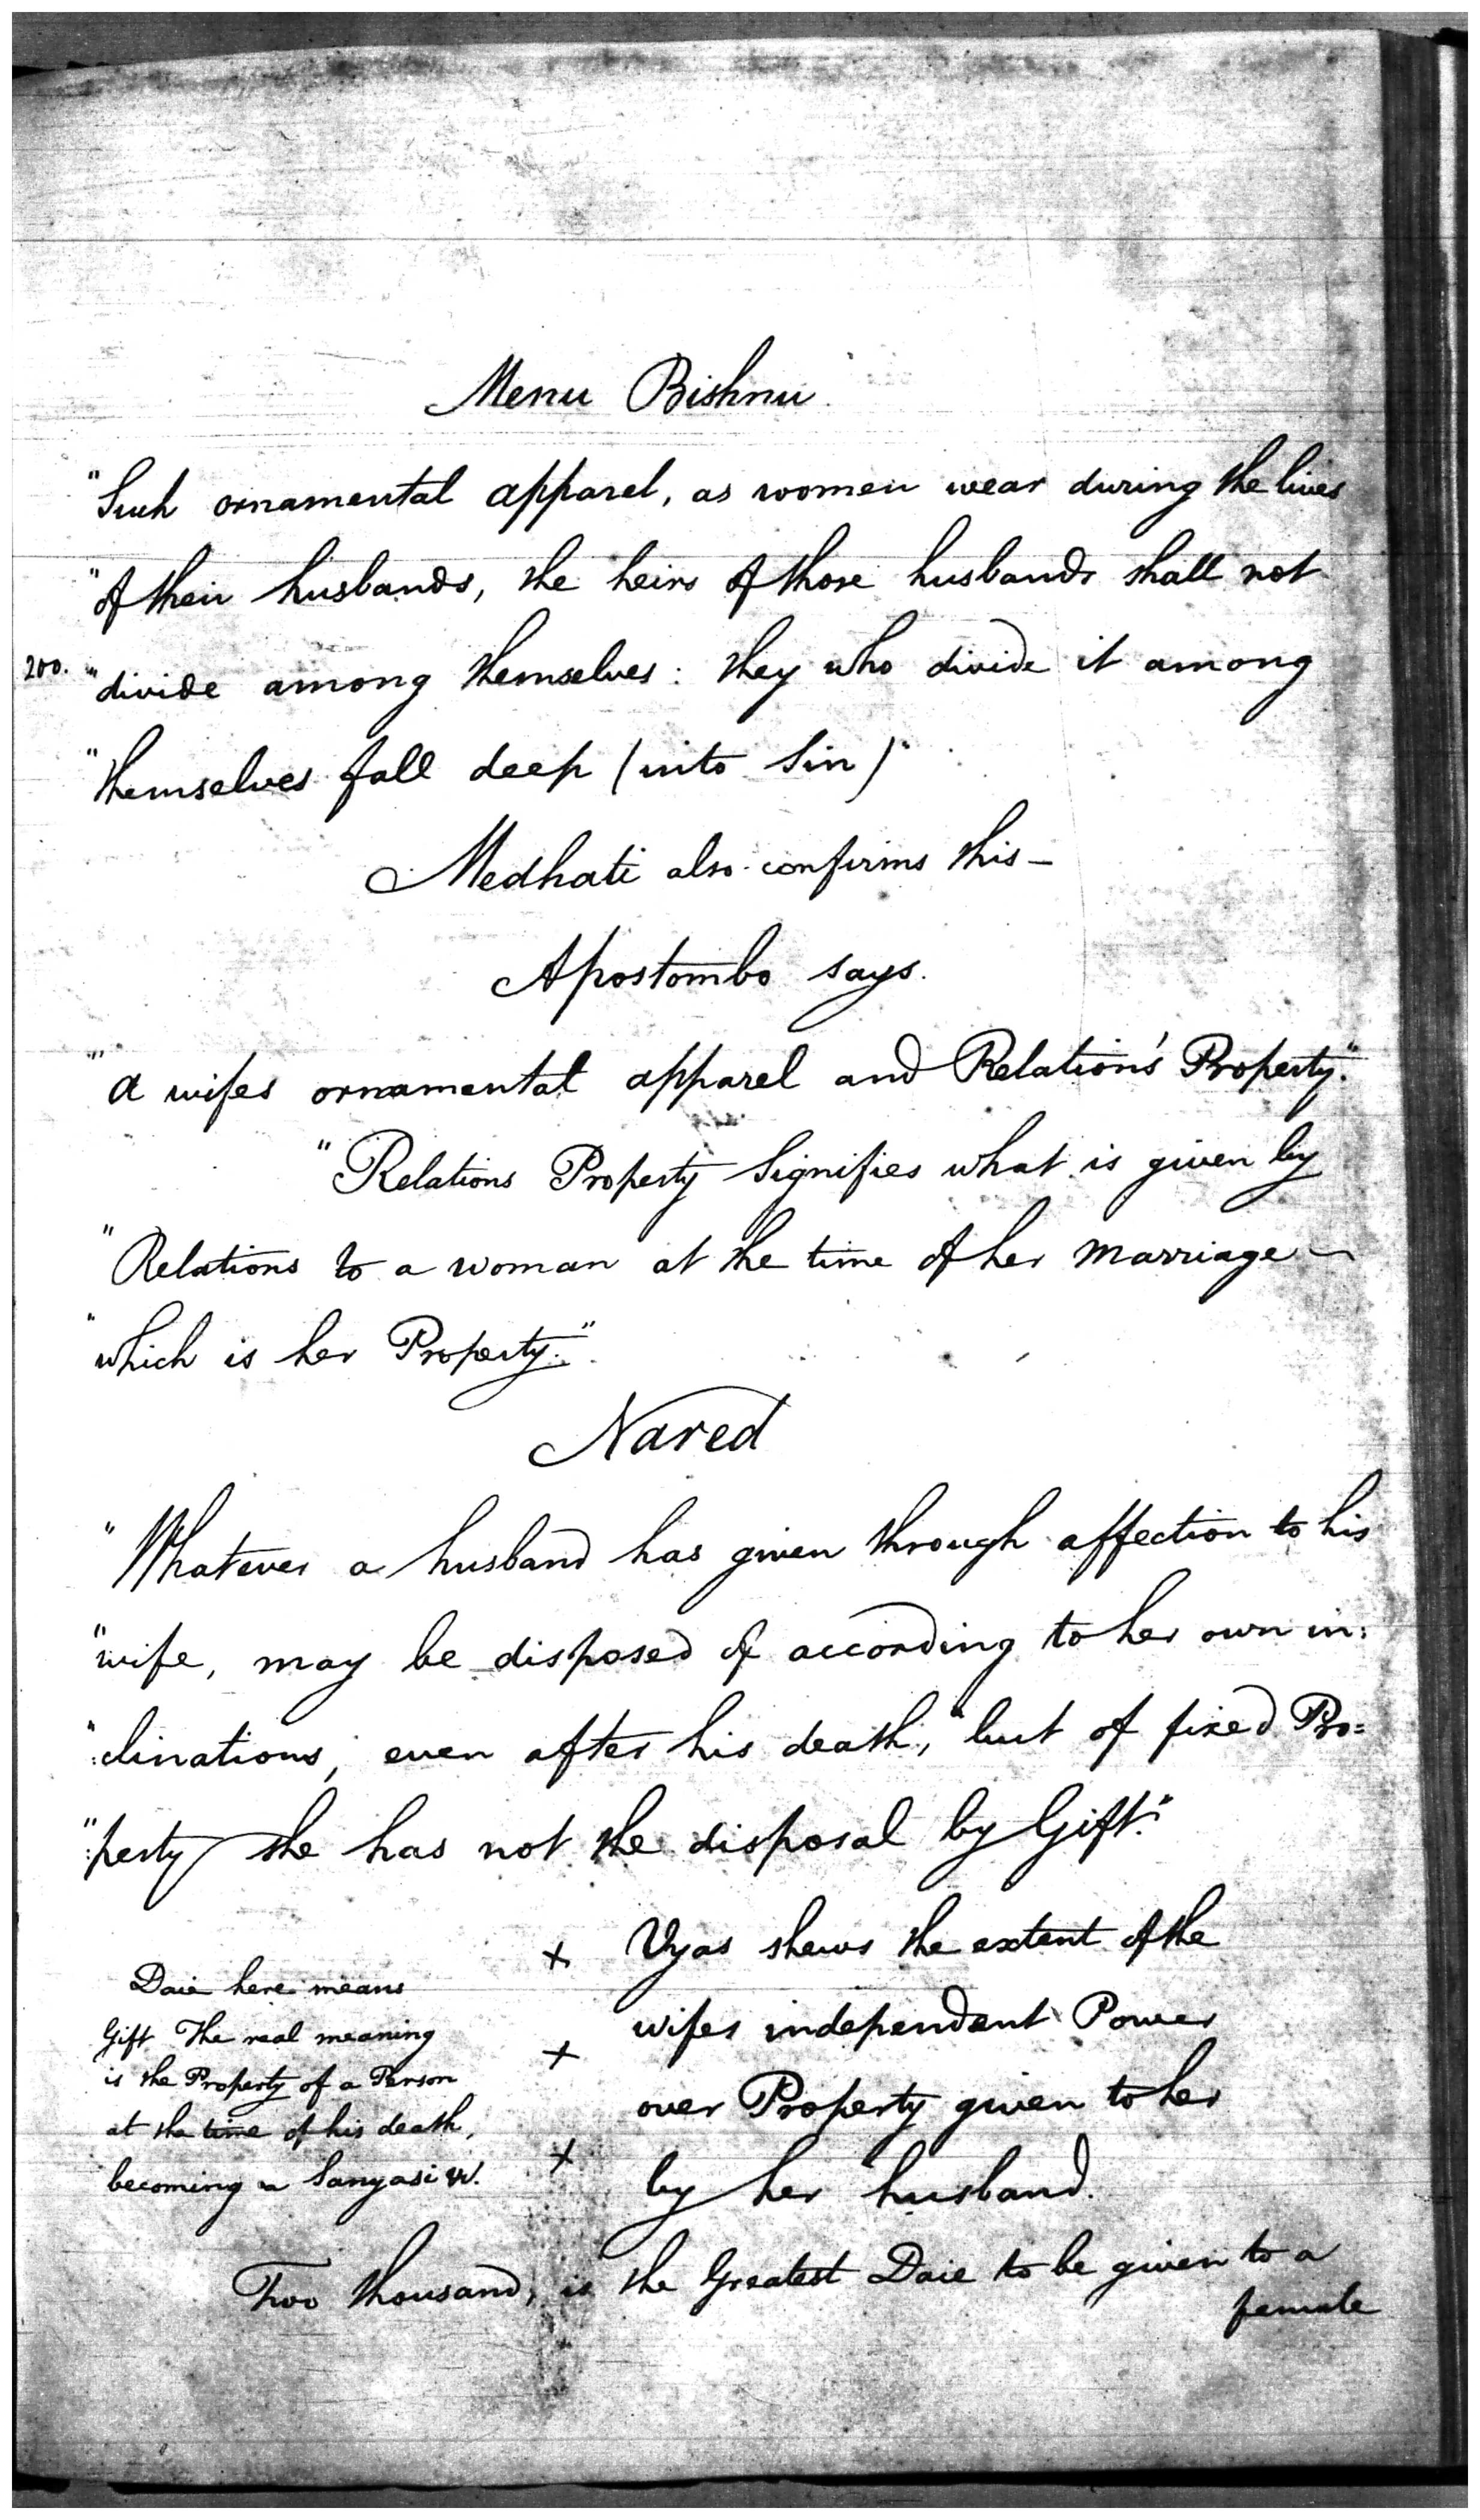 Menu Bishnu
"Such ornamental apparel, as women wear during the lives
"of their husbands, the heirs of those husbands shall not
200. "divide among themselves: they who divide it among
"themselves fall deep (into Sin)"
Medhati also confirms this—
Apostombo says.
"a wifes ornamental apparel and Relation's Property."
"Relations Property Signifies what is given by
"Relations to a woman at the time of her marriage
"which is her Property."
Nared
"Whatever a husband has given through affection to his
"wife, may be disposed of according to her own in:
":clinations, even after his death, "but of fixed Pro=
":perty she has not the disposal by Gift."
+ Vyas shews the extent of the
wifes independent Power
+ over Property given to her
+ by her husband.
Daie here means
Gift The real meaning
is the Property of a Person
at the time of his death,
becoming a Sanyasi &c.
Two thousand, is the Greatest Daie to be given to a
female